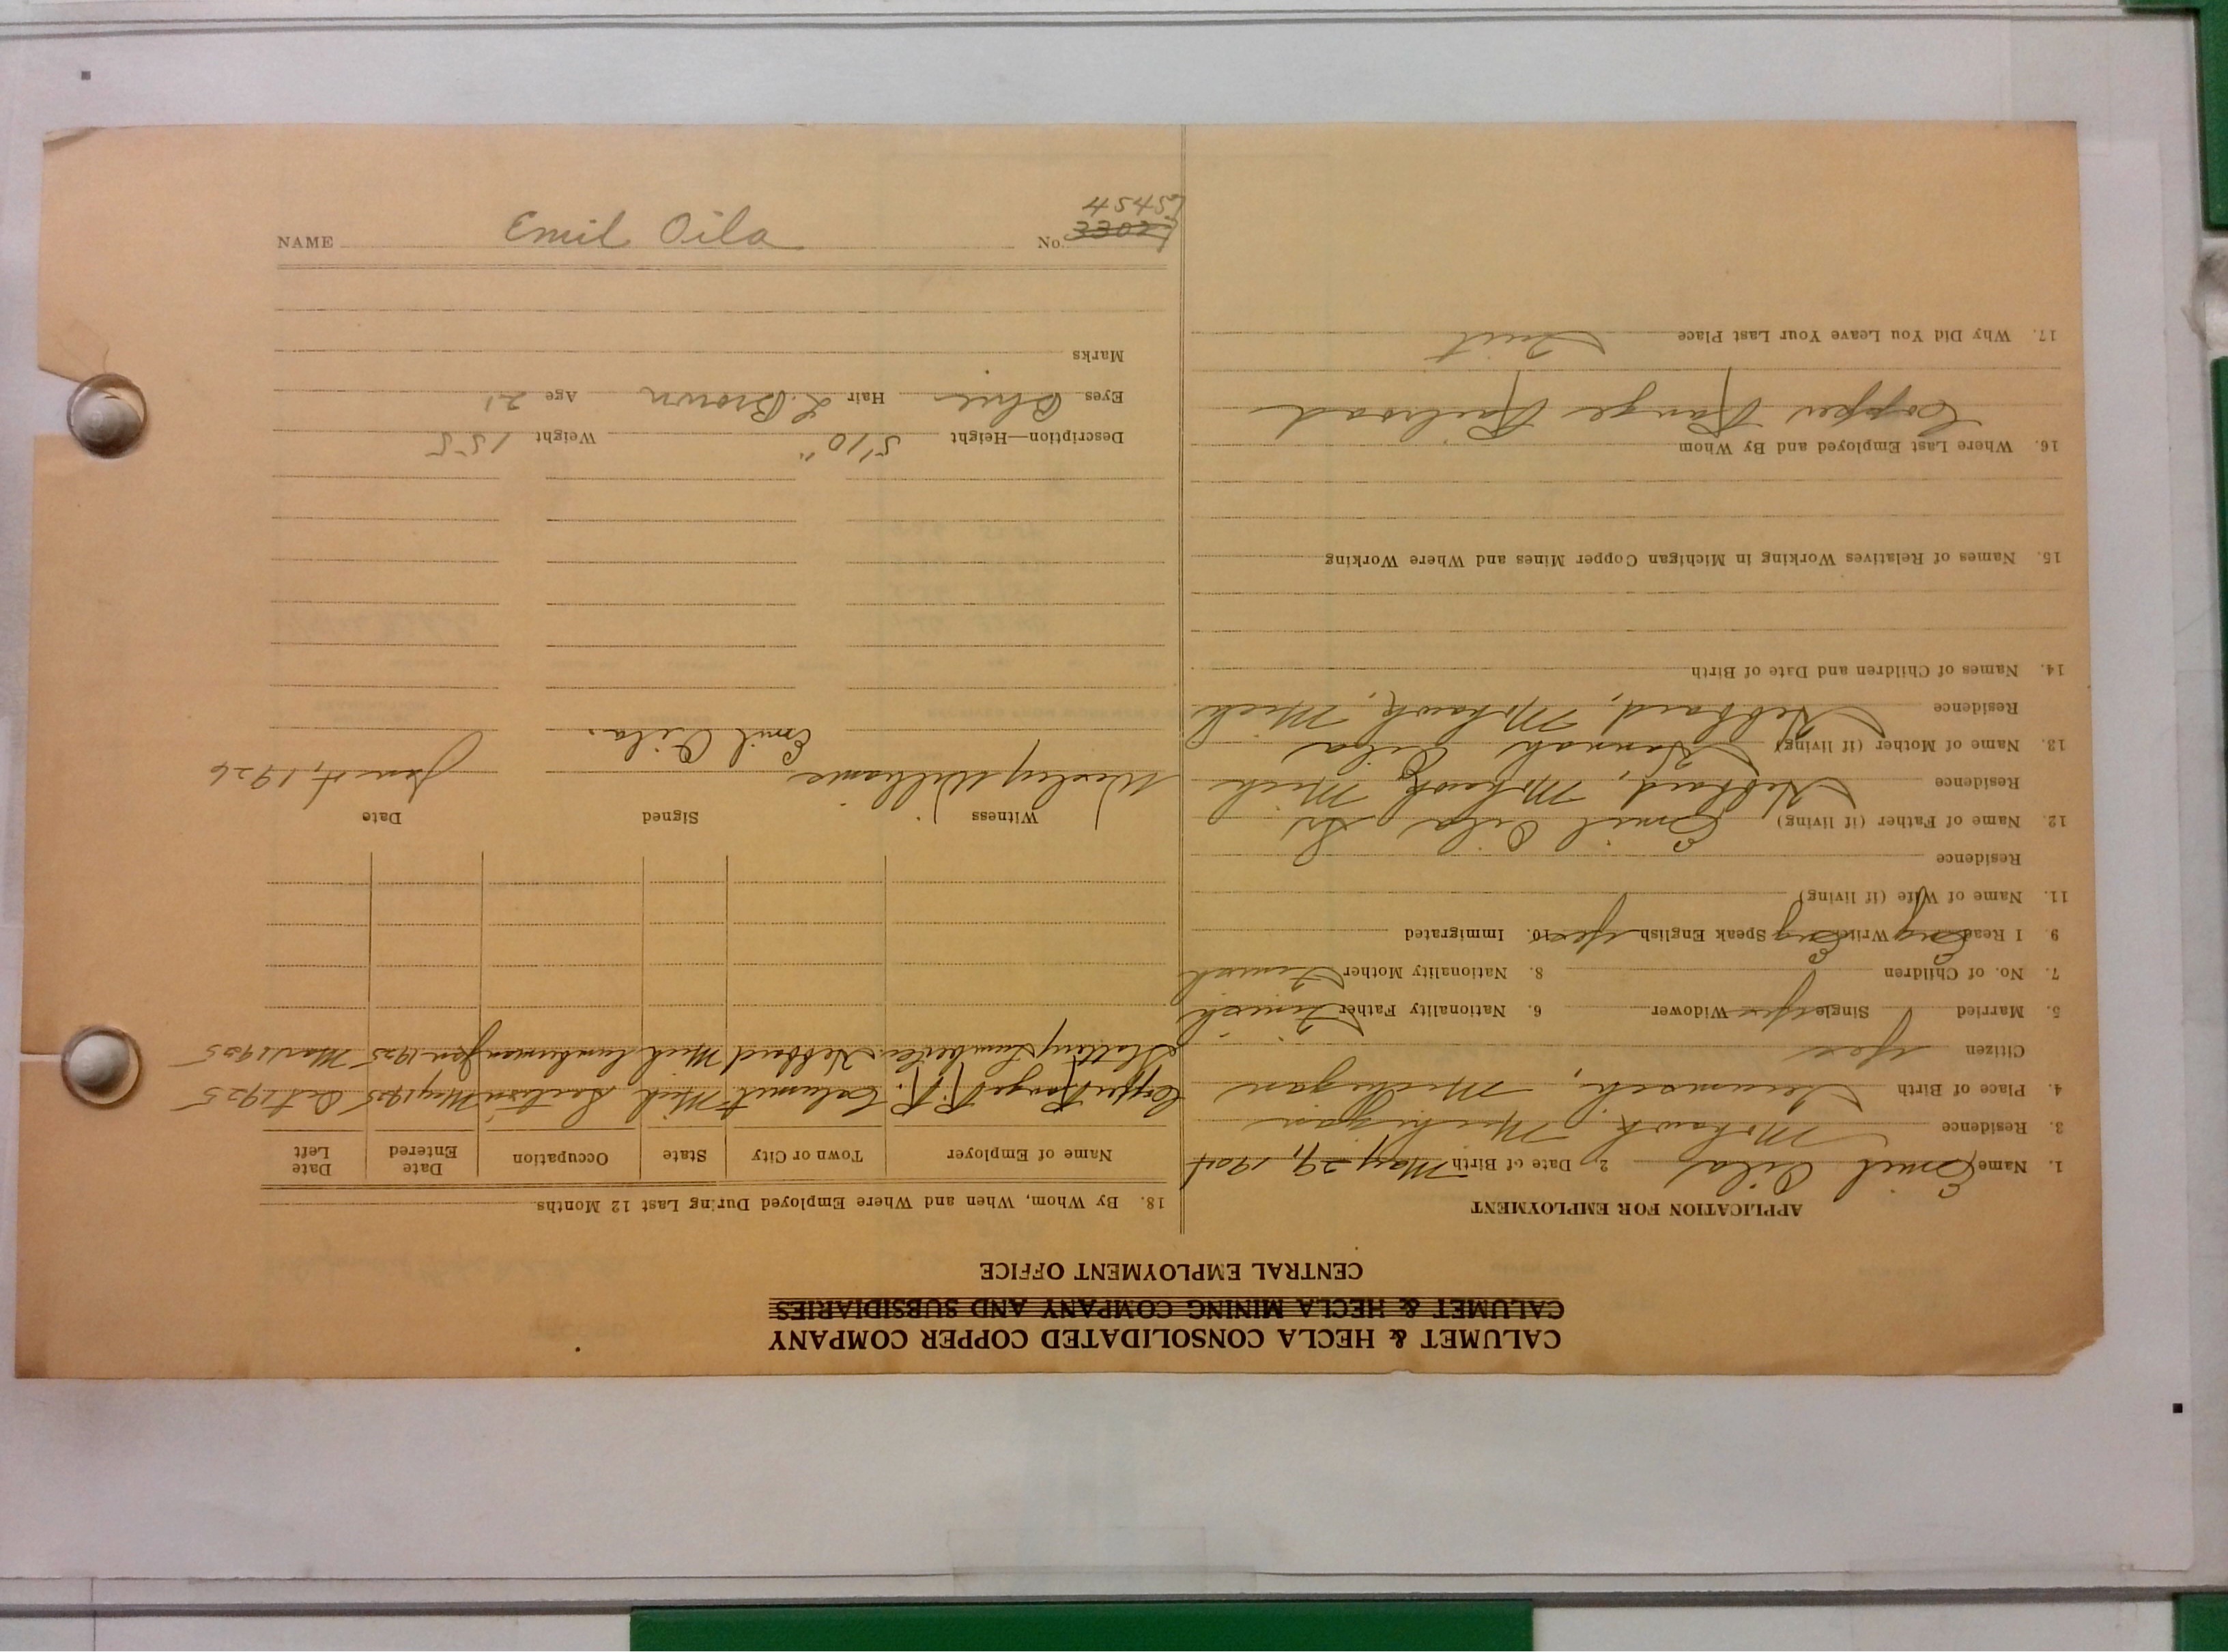 CALUMET & HECLA CONSOLIDATED COPPER COMPANY
CALUMET & HECLA MINING COMPANY AND SUBSIDIARIES
CENTRAL EMPLOYMENT OFFICE
APPLICATION FOR EMPLOYMENT
1. Name Emil Oila 2. Date of Birth May 29, 1904
3. Residence Mohawk Michigan
4. Place of Birth Michigan
Citizen Yes
5. Married Single yes Widower 6. Nationality Father Finnish
7. No. of Children 8. Nationality Mother Finnish
9. I Read Eng Write Eng Speak English yes 10. Immigrated
11. Name of Wife (if living)
Residence
12. Name of Father (if living) Emil Oila Sr
Residence Hebbard, Mohawk Mich
13. Name of Mother (if living) Hannah Oila
Residence Hebbard, Mohawk, Mich
14. Names of Children and Date of Birth
15. Names of Relatives Working in Michigan Copper Mines and Where Working
16. Where Last Employed and By Whom
Copper Range Railroad
17. Why Did You Leave Your Last Place Quit
18. By Whom, When and Where Employed During Last 12 Months.
Name of Employer Town or City State Occupation Date Entered Date Left
Copper Range R.R. Calumet Mich Section May 1925 Oct 1925
Hebbard Mich Lumberman Jan 1925 Mar 1925
Witness Signed Date
Wesley Williams Emil Oila. 1926
Description—Height 5'10" Weight 155
Eyes Blue Hair L. Brown Age 21
Marks
45457
NAME Emil Oila No. 33027